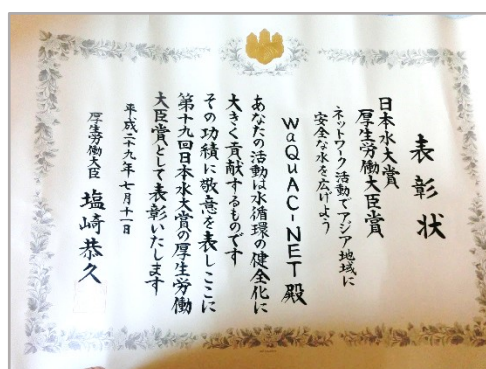 表彰状
日本水大賞
厚生労働大臣賞
ネットワーク活動でアジア地域に
安全な水を広げよう
WaQuAC-NET 殿
あなたの活動は水循環の健全化に
大きく貢献するものです
その功績に敬意を表しここに
第十九回日本水大賞の厚生労働
大臣賞として表彰いたします
平成二十九年七月十一日
厚生労働大臣 塩崎恭久